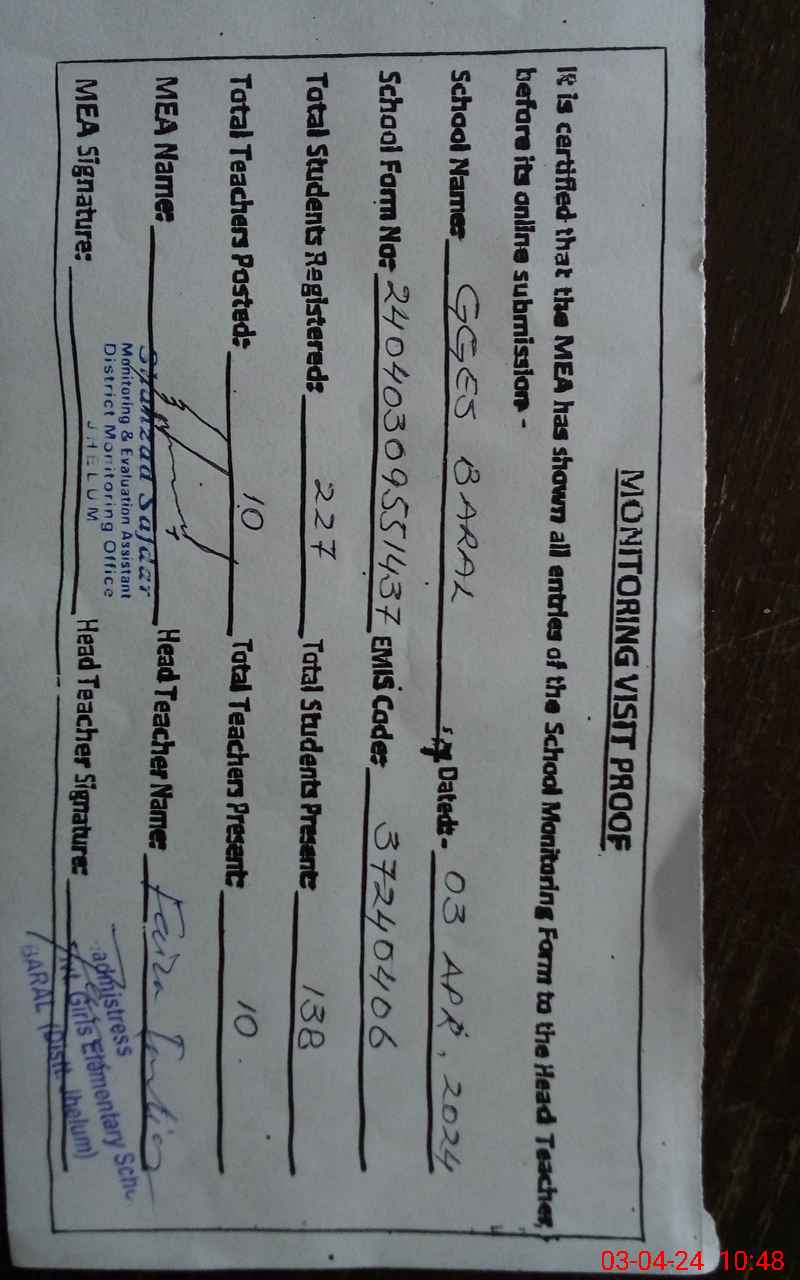 MONITORING VISIT PROOF
It is certified that the MEA has shown all entries of the School Monitoring Form to the Head Teacher,
before its online submission.
School Name: GGES BARAL Dated:- 03 APR, 2024
School Form No: 24040309551437 EMIS Code: 37240406
Total Students Registered: 227 Total Students Present: 138
Total Teachers Posted: 10 Total Teachers Present: 10
MEA Name: Shahzad Safdar Head Teacher Name:
Monitoring & Evaluation Assistant
District Monitoring Office
JHELUM
MEA Signature: Head Teacher Signature:
Girls Elementary
BARAL (Distt. Jhelum)
03-04-24 10:48